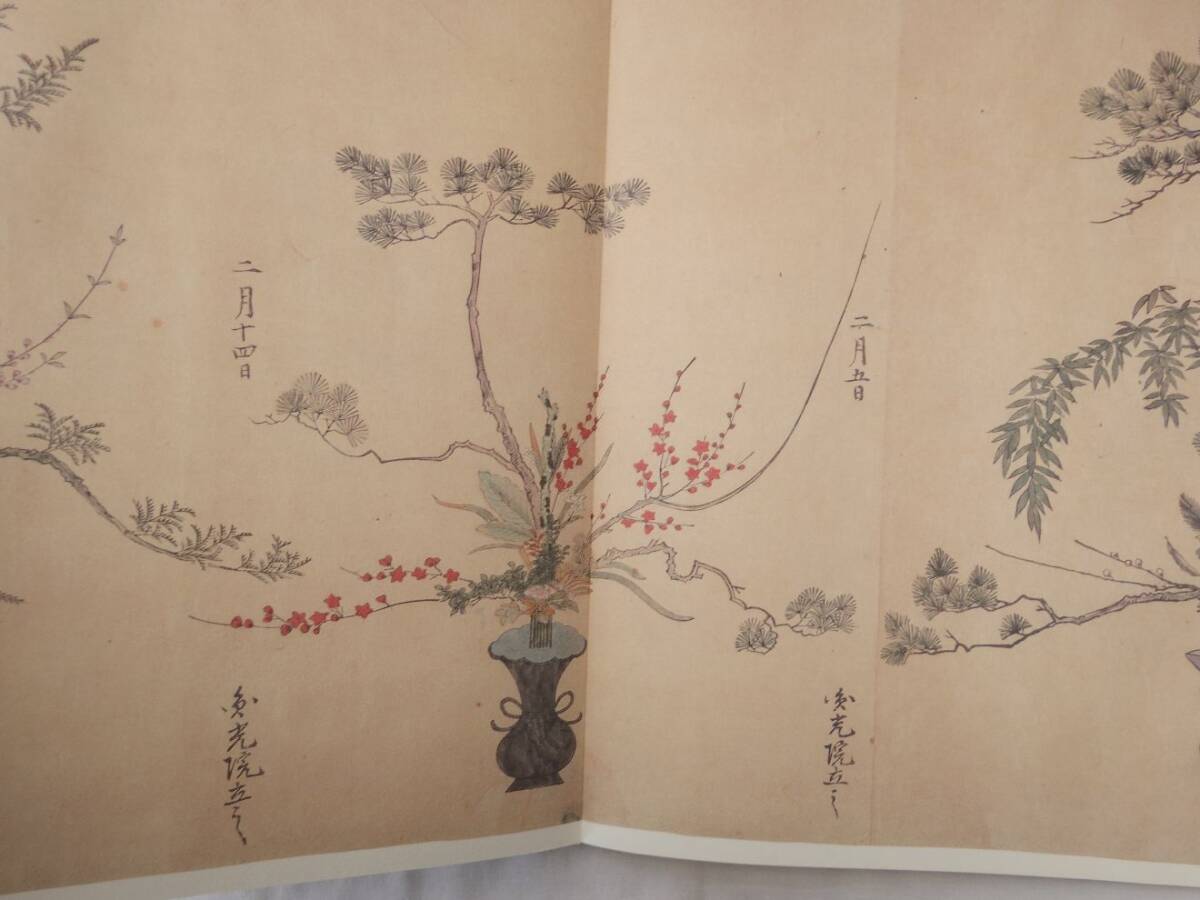 二月五日
光院立之
二月十四日
光院立之